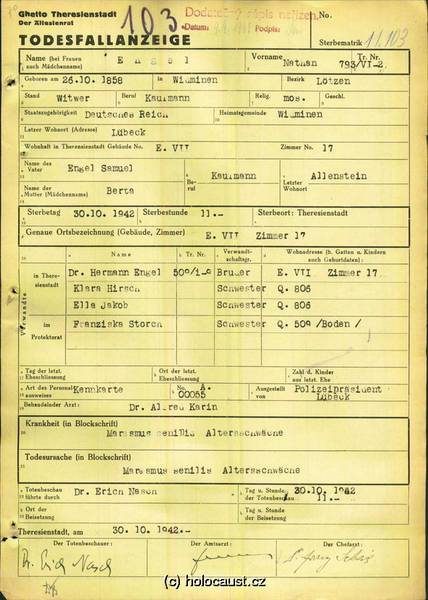 Ghetto Theresienstadt
Der Ältestenrat
103
Dodatečný zápis nařízen.
Datum:
Podpis:
No.
TODESFALLANZEIGE
Sterbematrik 11/103
Name (bei Frauen auch Mädchenname) Engel Vorname Nathan Tr. Nr. 793/VI-2
Geboren am 26.10. 1858 in Widminen Bezirk Lötzen
Stand Witwer Beruf Kaufmann Relig. mos. Geschl.
Staatszugehörigkeit Deutsches Reich Heimatsgemeinde Widminen
Letzter Wohnort (Adresse) Lübeck
Wohnhaft in Theresienstadt Gebäude No. E. VII Zimmer No. 17
Name des Vater Engel Samuel Beruf Kaufmann Letzter Wohnort Allenstein
Name der Mutter (Mädchenname) Berta
Sterbetag 30.10. 1942 Sterbestunde 11.-- Sterbeort: Theresienstadt
Genaue Ortsbezeichnung (Gebäude, Zimmer) E. VII Zimmer 17
Verwandte
Name Tr. Nr. Verwandtschaftsgr. Wohnadresse (b. Gatten u. Kindern auch Geburtsdaten):
in Theresienstadt
Dr. Hermann Engel Bruder E. VII Zimmer 17
Klara Hirsch Schwester Q. 806
Ella Jakob Schwester Q. 806
im Protektorat
Franziska Storch Schwester Q. 509 /Boden/
Tag der letzt. Eheschliessung Ort der letzt. Eheschliessung Zahl d. Kinder aus letzt. Ehe
Art des Personalausweises Kennkarte No. A. 00055 Ausgestellt von Polizeipräsident Lübeck
Behandelnder Arzt: Dr. Alfred Karin
Krankheit (in Blockschrift)
Marasmus senilis Altersschwäche
Todesursache (in Blockschrift)
Marasmus senilis Altersschwäche
Totenbeschau führte durch Dr. Erich Nasch Tag u. Stunde der Totenbeschau 30.10. 1942 11.--
Ort der Beisetzung Tag u. Stunde der Beisetzung
Theresienstadt, am 30.10. 1942.--
Der Totenbeschauer: Der Amtsarzt: Der Chefarzt:
Dr. Erich Nasch
(c) holocaust.cz